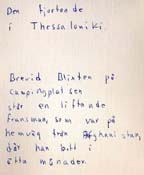 Den fjortonde
i Thessaloniki.
Brevid Blixten på
campingplatsen
står en liftande
fransman, som var på
hemväg från Afghanistan,
där han bott i
åtta månader.